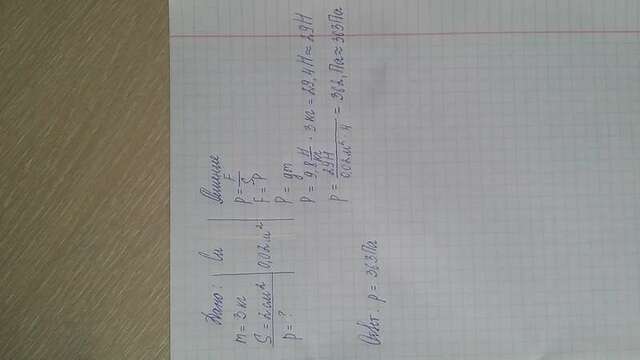 Дано:
m = 3 кг
S = 2 см²
p = ?
Си
0,02 м²
Решение
p = F/S
F = P
P = gm
P = 9,8 Н/кг · 3 кг = 29,4 Н ≈ 29 Н
p = 29Н/0,02м² · 4 = 362, Па ≈ 363 Па
Ответ. p = 363 Па